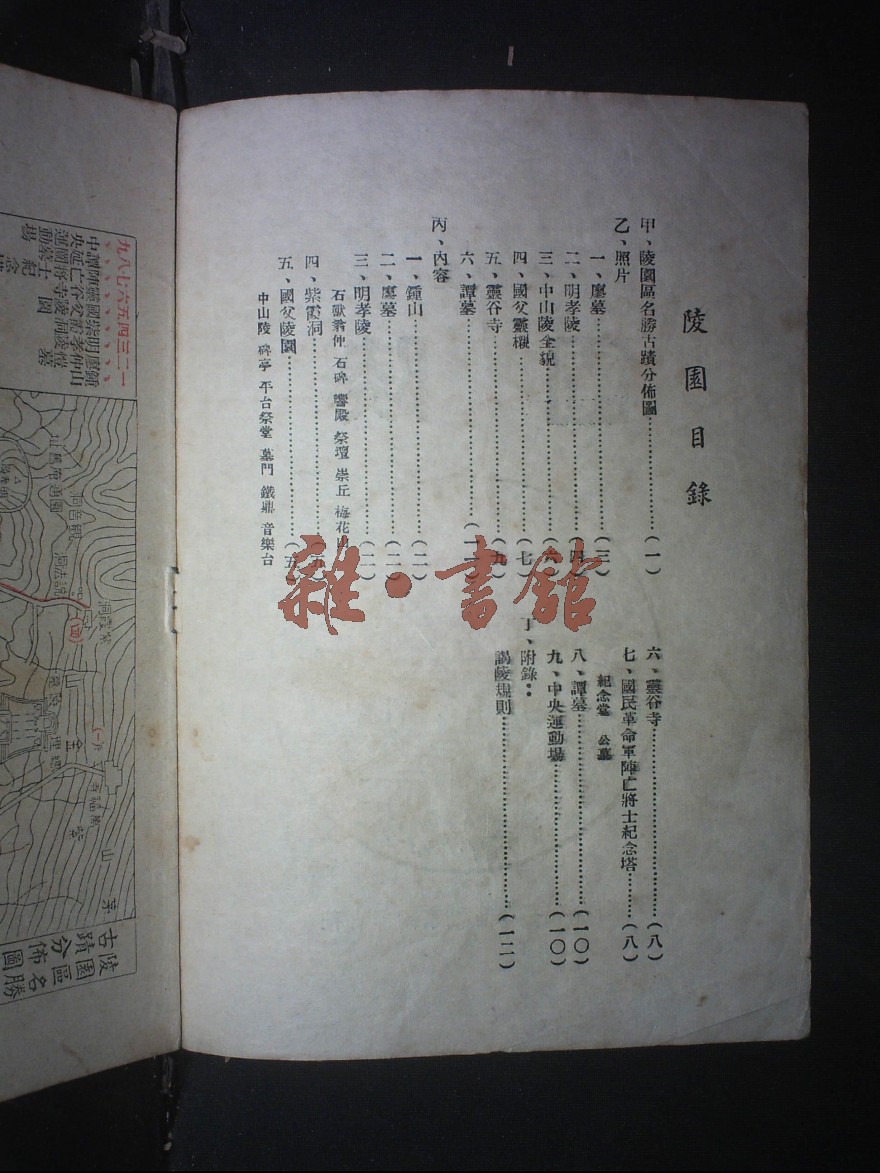 陵園目錄
甲、陵園區名勝古蹟分佈圖……(一)
乙、照片
一、廖墓……(三)
二、明孝陵……(四)
三、中山陵全貌……(六)
四、國父靈櫬……(七)
五、靈谷寺……(九)
六、譚墓……(一一)
丙、內容
一、鍾山……(一)
二、廖墓……(一)
三、明孝陵……(二)
石獸翁仲 石碑 饗殿 祭壇 崇丘 梅花
四、紫霞洞……(五)
五、國父陵園……(五)
中山陵 碑亭 平台祭堂 墓門 鐵鼎 音樂台
六、靈谷寺……(八)
七、國民革命軍陣亡將士紀念塔……(八)
紀念堂 公墓
八、譚墓……(一〇)
九、中央運動場……(一〇)
丁、附錄：
謁陵規則……(一二)
雜·書館
陵園區名勝古蹟分佈圖
一二三四五六七八九